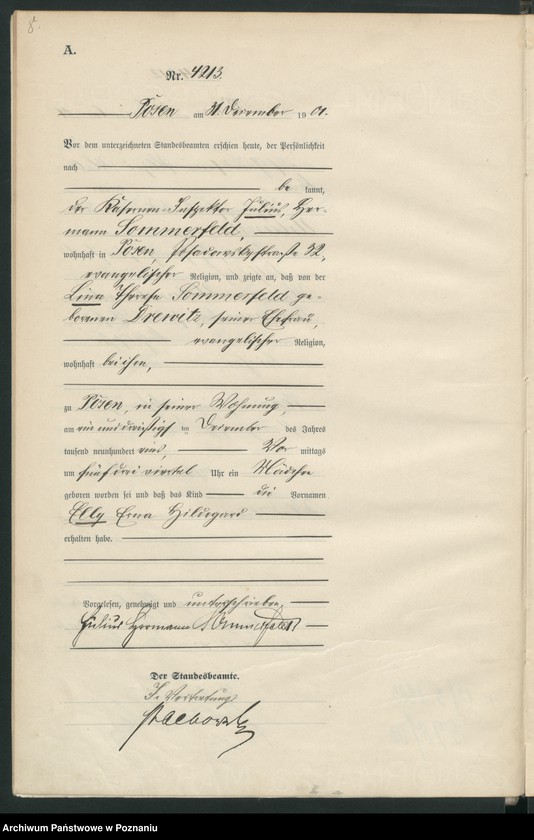 8.
A.
Nr. 4213.
Posen am 31. Dezember 1901.
Vor dem unterzeichneten Standesbeamten erschien heute, der Persönlichkeit
nach
be kannt,
der Kasernen-Inspektor Julius, Her-
mann Sommerfeld,
wohnhaft in Posen, Posadowskystraße 32,
evangelischer Religion, und zeigte an, daß von der
Lina Therese Sommerfeld ge-
borenen Drewitz, seiner Ehefrau,
evangelischer Religion,
wohnhaft bei ihm,
zu Posen, in seiner Wohnung,
am ein und dreißigsten Dezember des Jahres
tausend neunhundert eins, Vor mittags
um fünf drei viertel Uhr ein Mädchen
geboren worden sei und daß das Kind die Vornamen
Elly Erna Hildegard
erhalten habe.
Vorgelesen, genehmigt und unterschrieben
Julius Hermann Sommerfeld
Der Standesbeamte.
In Vertretung
Archiwum Państwowe w Poznaniu